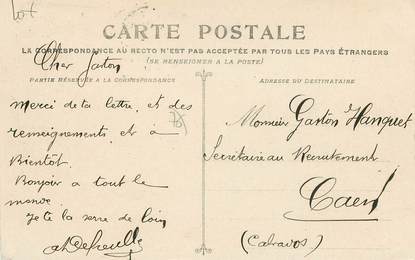 CARTE POSTALE
LA CORRESPONDANCE AU RECTO N'EST PAS ACCEPTÉE PAR TOUS LES PAYS ÉTRANGERS
(SE RENSEIGNER A LA POSTE)
PARTIE RÉSERVÉE A LA CORRESPONDANCE
ADRESSE DU DESTINATAIRE
Cher Gaston
Merci de ta lettre et des
renseignements et à
Bientôt.
Bonjour a tout le
monde.
Je te la serre de loin
Monsieur Gaston Hanquet
Secrétaire au Recrutement
Caen
(Calvados)